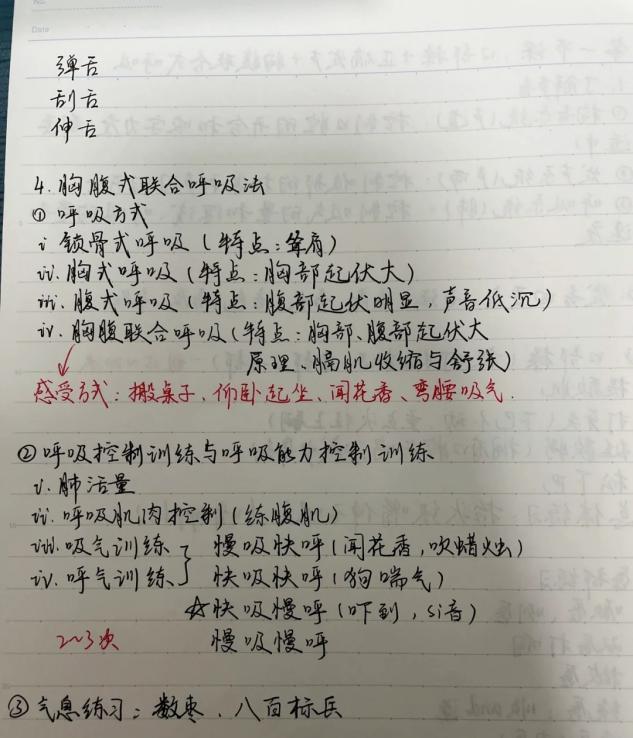 No.
Date
弹舌
刮舌
伸舌
4.胸腹式联合呼吸法
①呼吸方式
i 锁骨式呼吸(特点:耸肩)
ii.胸式呼吸(特点:胸部起伏大)
iii.腹式呼吸(特点:腹部起伏明显,声音低沉)
iv.胸腹联合呼吸(特点:胸部、腹部起伏大
原理、膈肌收缩与舒张)
感受方式:搬桌子、仰卧起坐、闻花香、弯腰吸气.
②呼吸控制训练与呼吸能力控制训练
i.肺活量
ii.呼吸肌肉控制(练腹肌)
iii.吸气训练 慢吸快呼(闻花香,吹蜡烛)
iv.呼气训练 快吸快呼(狗喘气)
☆快吸慢呼(吓到,si音)
2~3次 慢吸慢呼
③气息练习:数枣、八百标兵